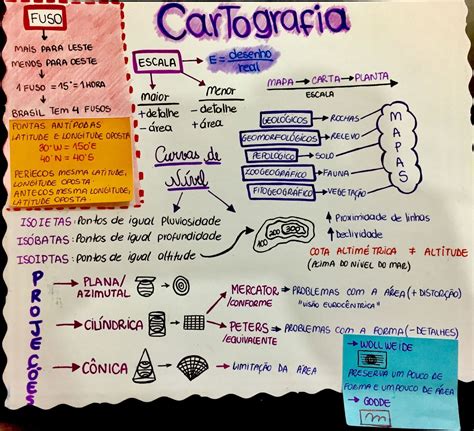 CarTografia
FUSO
MAIS PARA LESTE
MENOS PARA OESTE
1 FUSO = 15° = 1 HORA
BRASIL TEM 4 FUSOS
PONTAS ANTÍPODAS
LATITUDE E LONGITUDE OPOSTA
80°W = 150°E
40°N = 40°S
PERIECOS MESMA LATITUDE,
LONGITUDE OPOSTA
ANTECOS MESMA LONGITUDE,
LATITUDE OPOSTA
ESCALA
E = desenho
real
maior
+ detalhe
- área
menor
- detalhe
+ área
MAPA → CARTA → PLANTA
ESCALA
GEOLÓGICOS → ROCHAS
GEOMORFOLÓGICOS → RELEVO
PEDOLÓGICO → SOLO
ZOOGEOGRÁFICO → FAUNA
FITOGEOGRÁFICO → VEGETAÇÃO
MAPAS
Curvas de
Nível
ISOIETAS: Pontos de igual Pluviosidade
ISÓBATAS: Pontos de igual profundidade
ISOIPTAS: Pontos de igual altitude
100 200 300
↑ Proximidade de linhas
↑ Declividade
COTA ALTIMÉTRICA ≠ ALTITUDE
(ACIMA DO NÍVEL DO MAR)
PROJEÇÕES
PLANA/
AZIMUTAL
CILÍNDRICA
CÔNICA → LIMITAÇÃO DA ÁREA
MERCATOR/CONFORME → PROBLEMAS COM A ÁREA (+ DISTORÇÃO)
"VISÃO EUROCÊNTRICA"
PETERS/EQUIVALENTE → PROBLEMAS COM A FORMA (- DETALHES)
→ WOLLWEIDE
PRESERVA UM POUCO DE
FORMA E UM POUCO DE ÁREA
→ GOODE